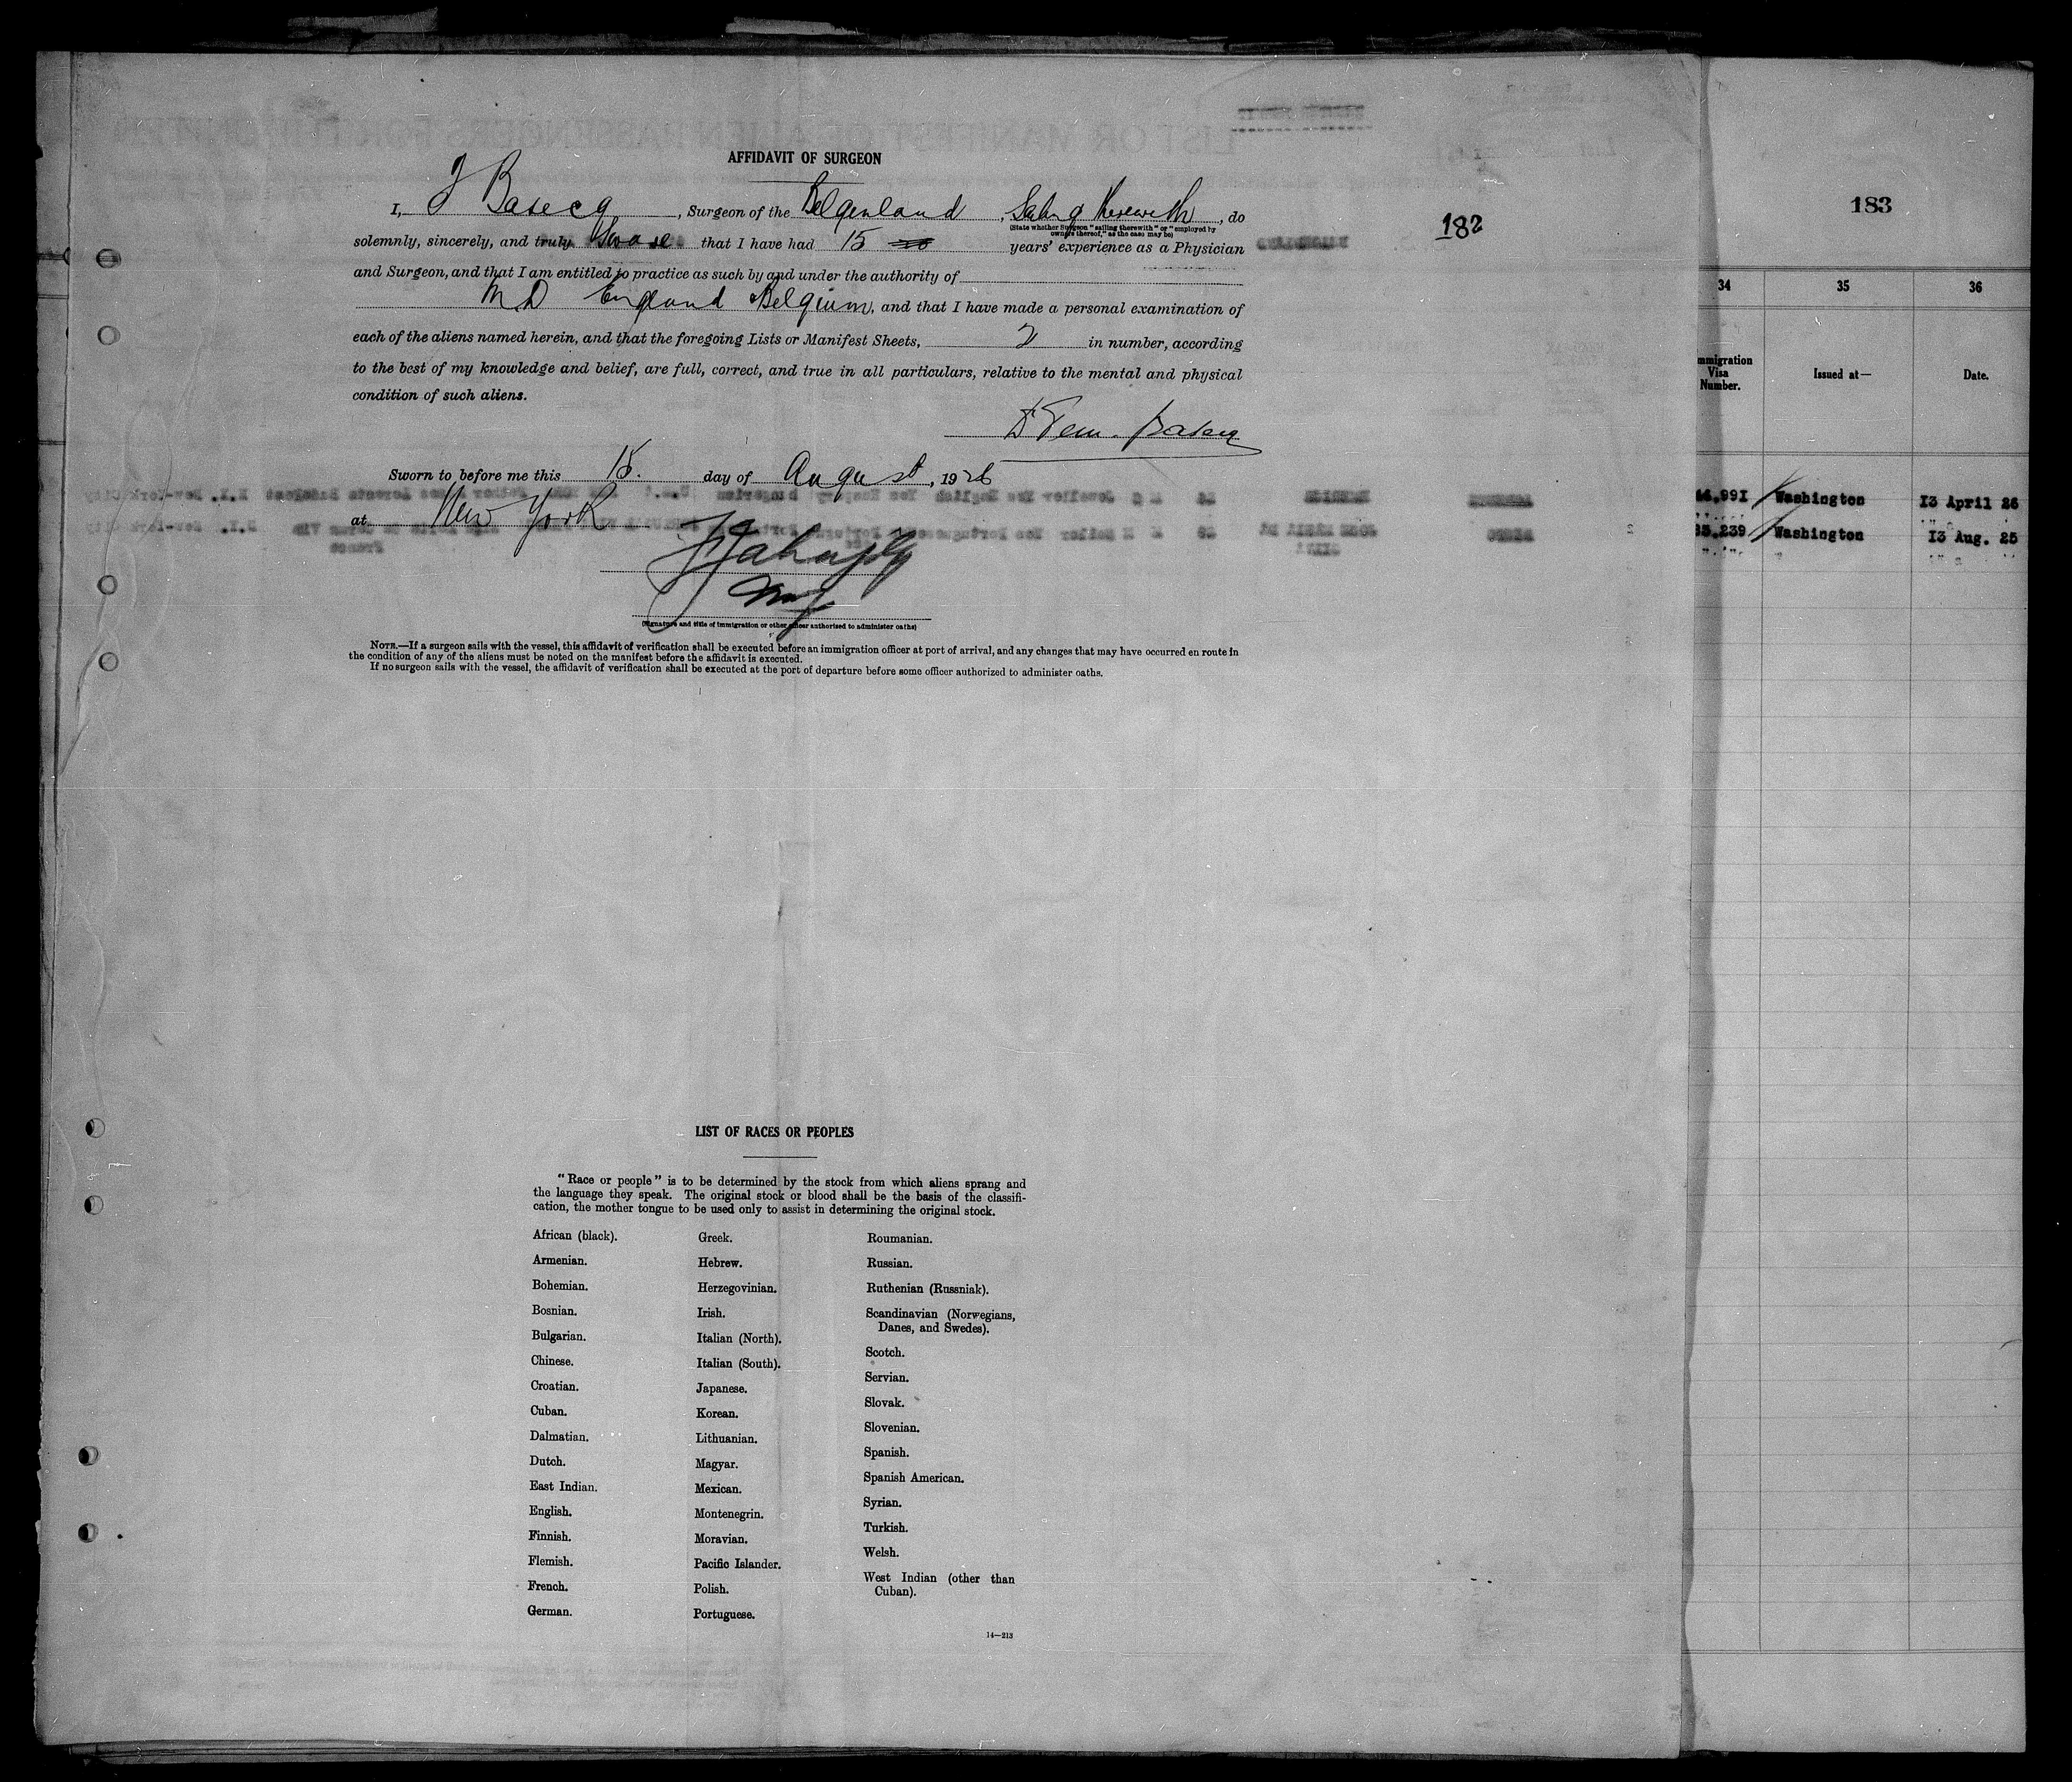 AFFIDAVIT OF SURGEON
I, J Basecq, Surgeon of the Belgenland, Sailing therewith, do
(State whether Surgeon "sailing therewith" or "employed by
owners thereof," as the case may be)
solemnly, sincerely, and truly Swear that I have had 15 years' experience as a Physician
and Surgeon, and that I am entitled to practice as such by and under the authority of
M.D England Belgium, and that I have made a personal examination of
each of the aliens named herein, and that the foregoing Lists or Manifest Sheets, 2 in number, according
to the best of my knowledge and belief, are full, correct, and true in all particulars, relative to the mental and physical
condition of such aliens.
Sworn to before me this 15. day of August, 1926
at New York
(Signature and title of immigration or other officer authorized to administer oaths)
NOTE.—If a surgeon sails with the vessel, this affidavit of verification shall be executed before an immigration officer at port of arrival, and any changes that may have occurred en route in
the condition of any of the aliens must be noted on the manifest before the affidavit is executed.
If no surgeon sails with the vessel, the affidavit of verification shall be executed at the port of departure before some officer authorized to administer oaths.
182
LIST OF RACES OR PEOPLES
"Race or people" is to be determined by the stock from which aliens sprang and
the language they speak. The original stock or blood shall be the basis of the classifi-
cation, the mother tongue to be used only to assist in determining the original stock.
African (black).
Armenian.
Bohemian.
Bosnian.
Bulgarian.
Chinese.
Croatian.
Cuban.
Dalmatian.
Dutch.
East Indian.
English.
Finnish.
Flemish.
French.
German.
Greek.
Hebrew.
Herzegovinian.
Irish.
Italian (North).
Italian (South).
Japanese.
Korean.
Lithuanian.
Magyar.
Mexican.
Montenegrin.
Moravian.
Pacific Islander.
Polish.
Portuguese.
Roumanian.
Russian.
Ruthenian (Russniak).
Scandinavian (Norwegians,
Danes, and Swedes).
Scotch.
Servian.
Slovak.
Slovenian.
Spanish.
Spanish American.
Syrian.
Turkish.
Welsh.
West Indian (other than
Cuban).
14—213
183
34 35 36
mmigration
Visa
Number.
Issued at—
Date.
991 Washington 13 April 26
239 Washington 13 Aug. 25